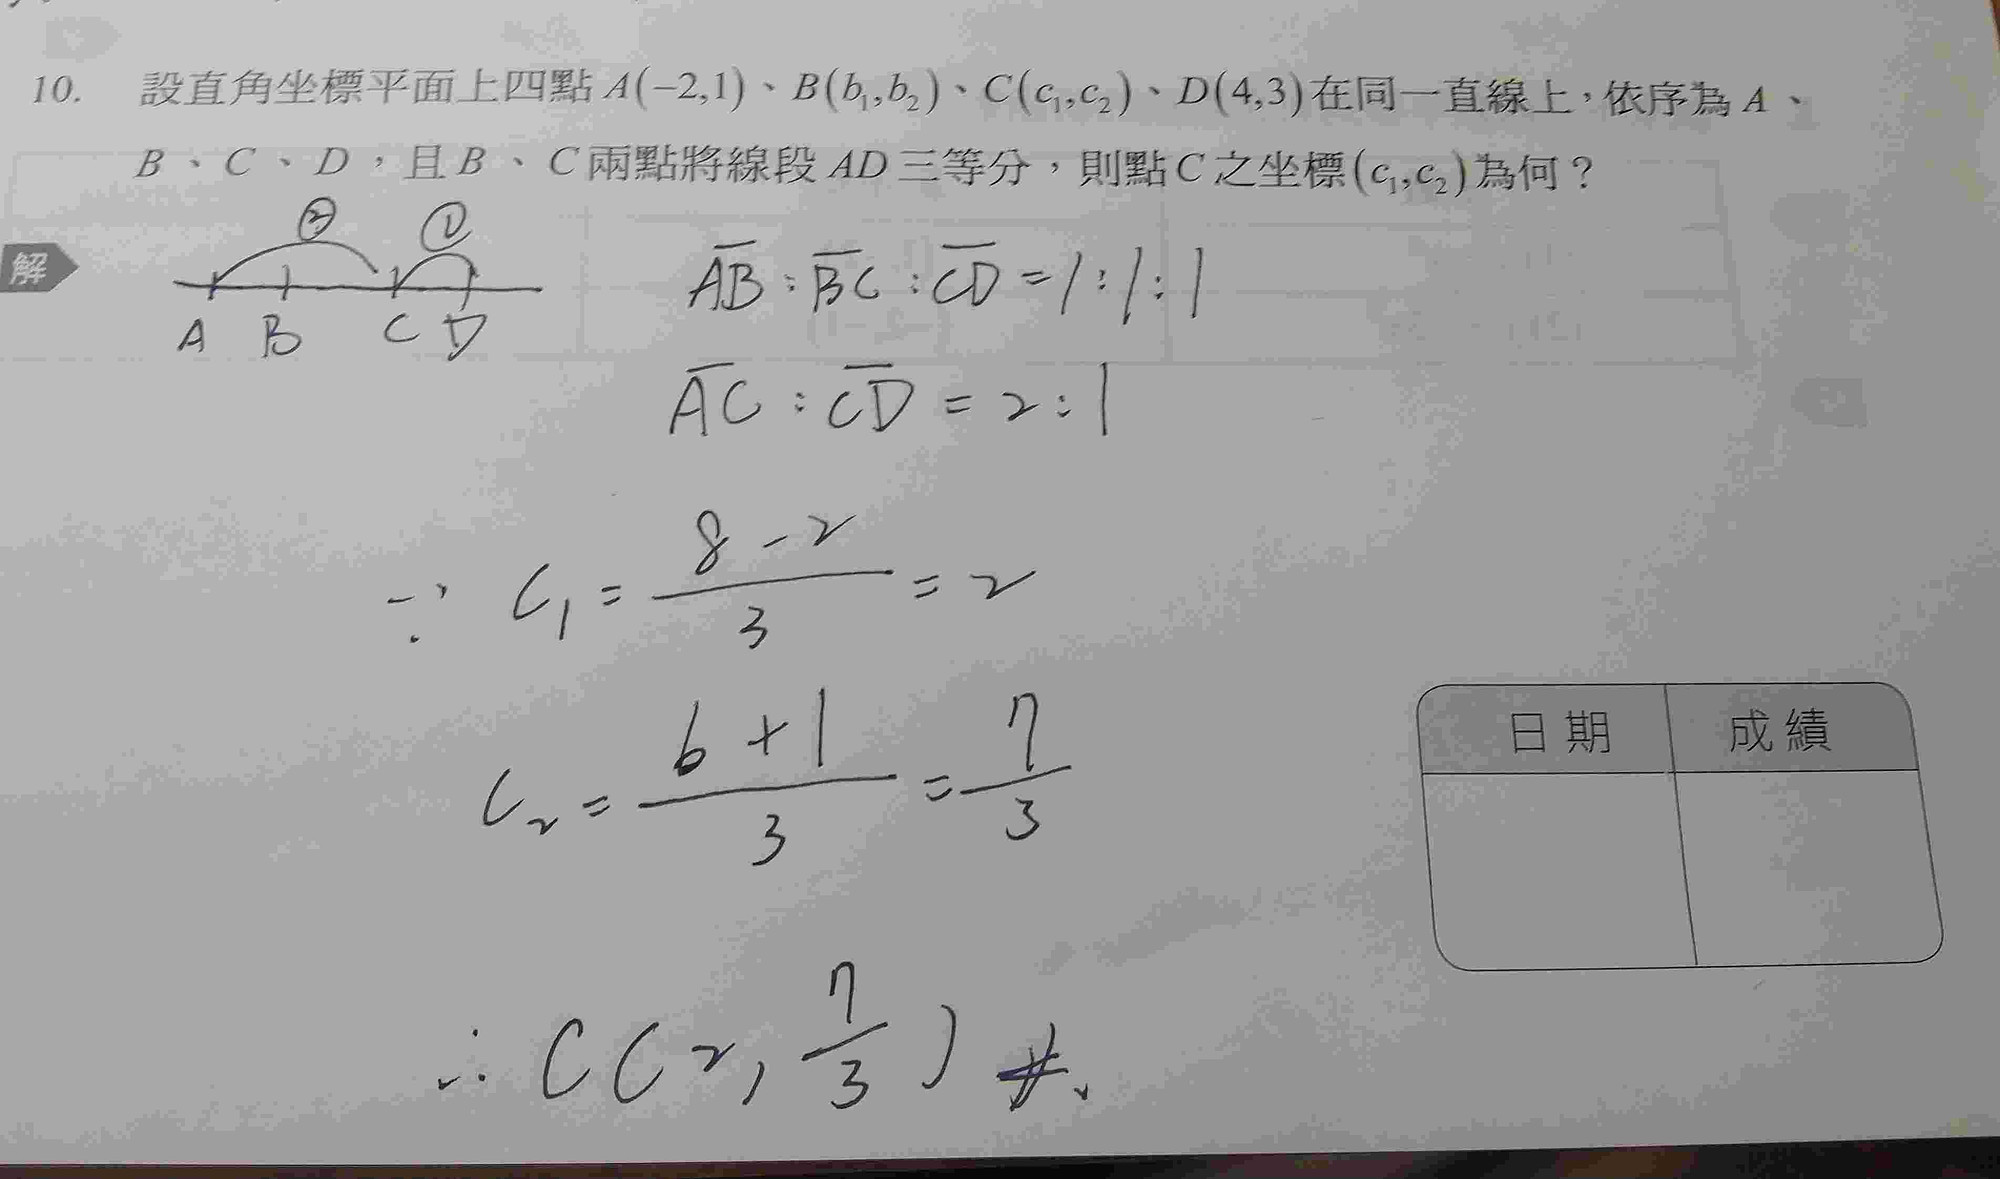 10. 設直角坐標平面上四點 A(−2,1)、B(b₁,b₂)、C(c₁,c₂)、D(4,3)在同一直線上，依序為 A、
B、C、D，且 B、C 兩點將線段 AD 三等分，則點 C 之坐標(c₁,c₂)為何？
解
② ①
A B C D
A̅B̅ : B̅C̅ : C̅D̅ = 1 : 1 : 1
A̅C̅ : C̅D̅ = 2 : 1
∵ C₁ = (8 - 2)/3 = 2
C₂ = (6 + 1)/3 = 7/3
∴ C(2, 7/3) #
日期 成績